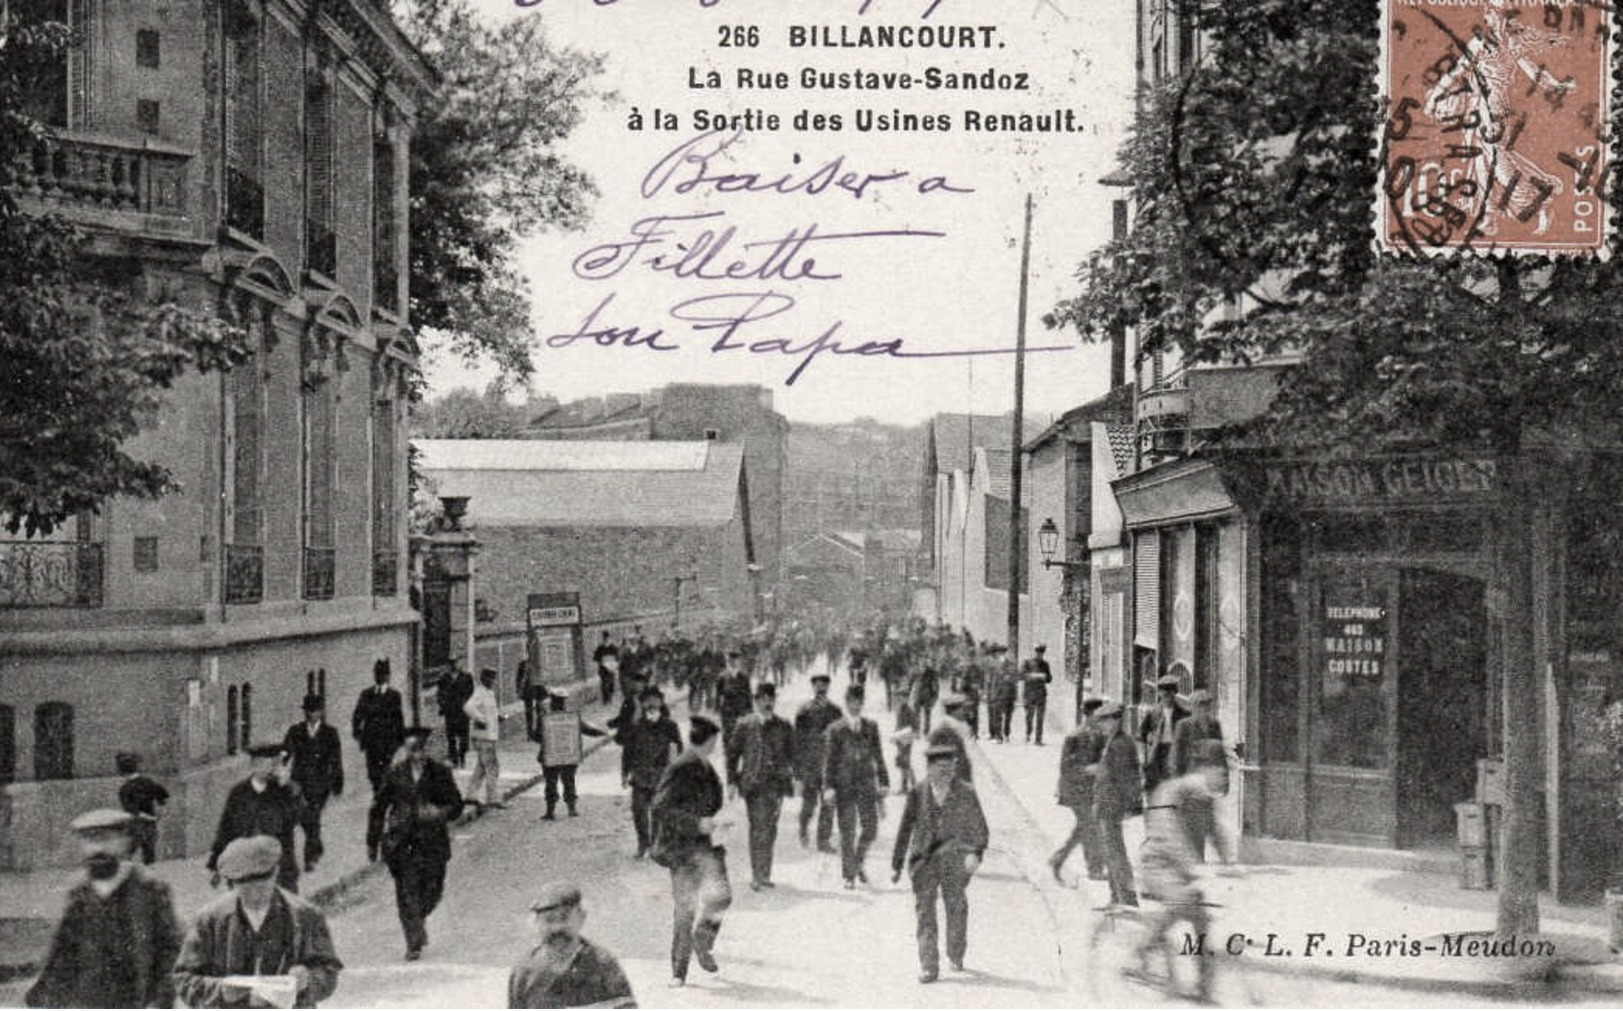 266 BILLANCOURT.
La Rue Gustave-Sandoz
à la Sortie des Usines Renault.
Baiser a
Fillette
Son Papa
POSTES
MAISON GEIGER
TELEPHONE
MAISON
COSTES
M. C. L. F. Paris-Meudon